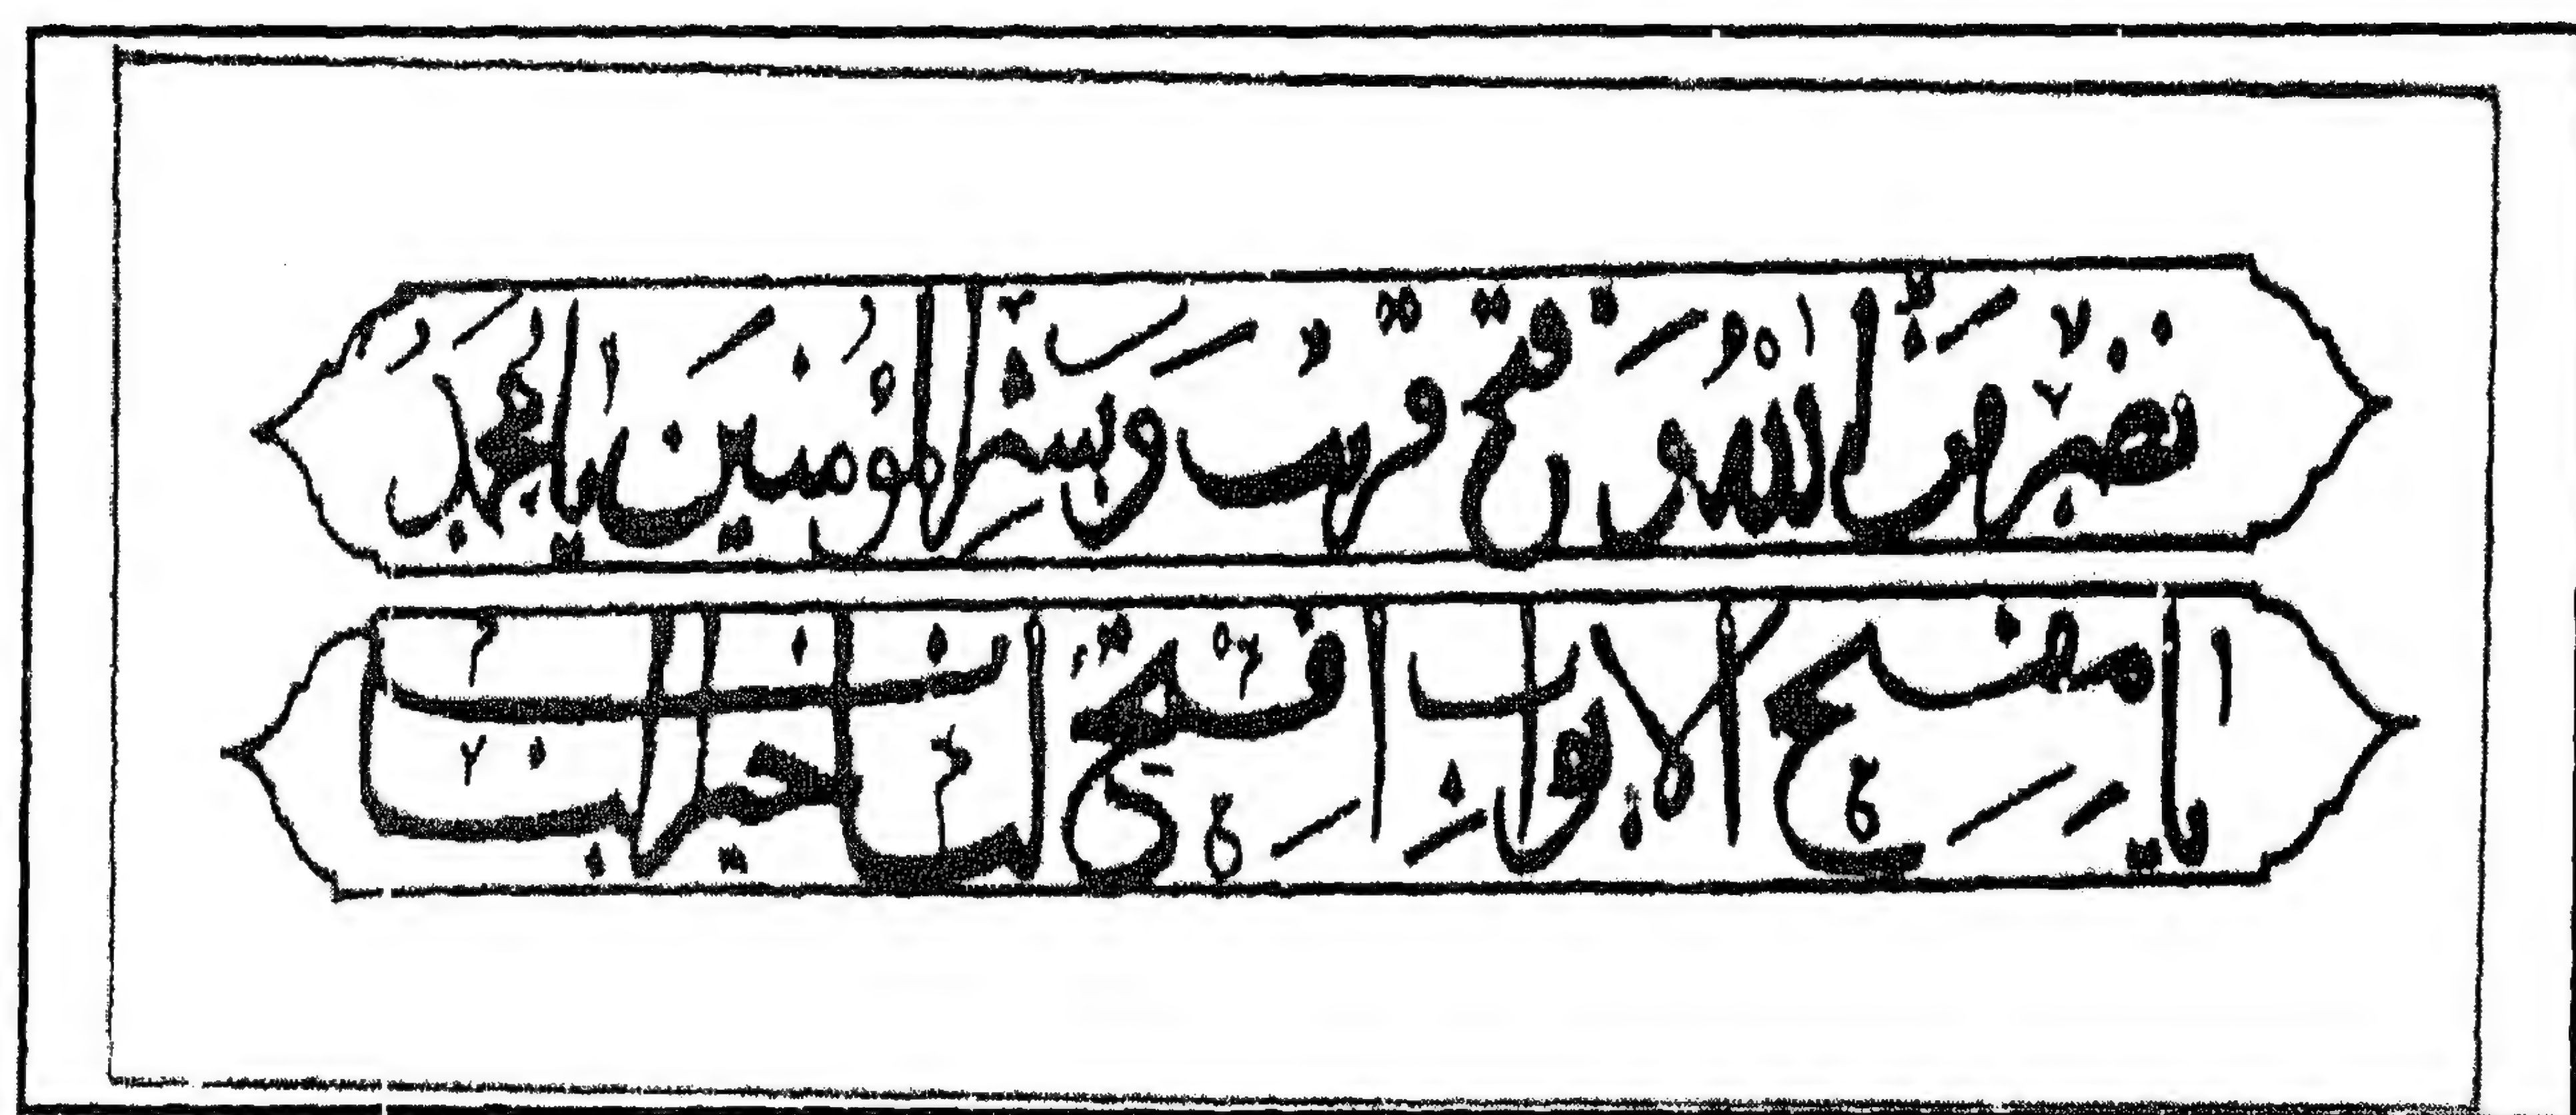 نصر من الله وفتح قريب وبشر المؤمنين يا محمد
يا مفتح الابواب افتح لنا خير الباب